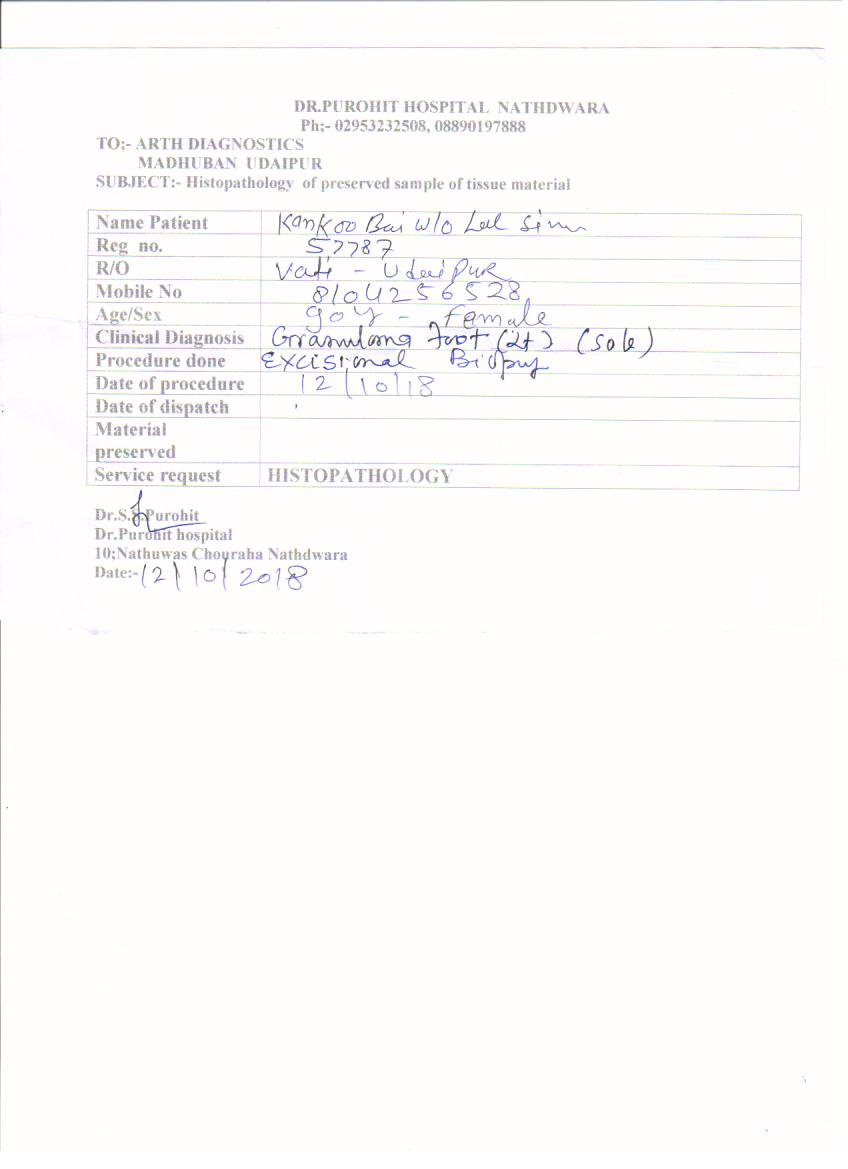 DR.PUROHIT HOSPITAL NATHDWARA
Ph;- 02953232508, 08890197888
TO;- ARTH DIAGNOSTICS
MADHUBAN UDAIPUR
SUBJECT:- Histopathology of preserved sample of tissue material
Name Patient Kankoo Bai w/o Lal
Reg no. 57787
R/O Vati - Udaipur
Mobile No 8104256528
Age/Sex 90Y - Female
Clinical Diagnosis Granuloma Foot (Sole)
Procedure done Excisional Biopsy
Date of procedure 12/10/18
Date of dispatch
Material
preserved
Service request HISTOPATHOLOGY
Dr.S.S.Purohit
Dr.Purohit hospital
10;Nathuwas Chouraha Nathdwara
Date:- 12/10/2018